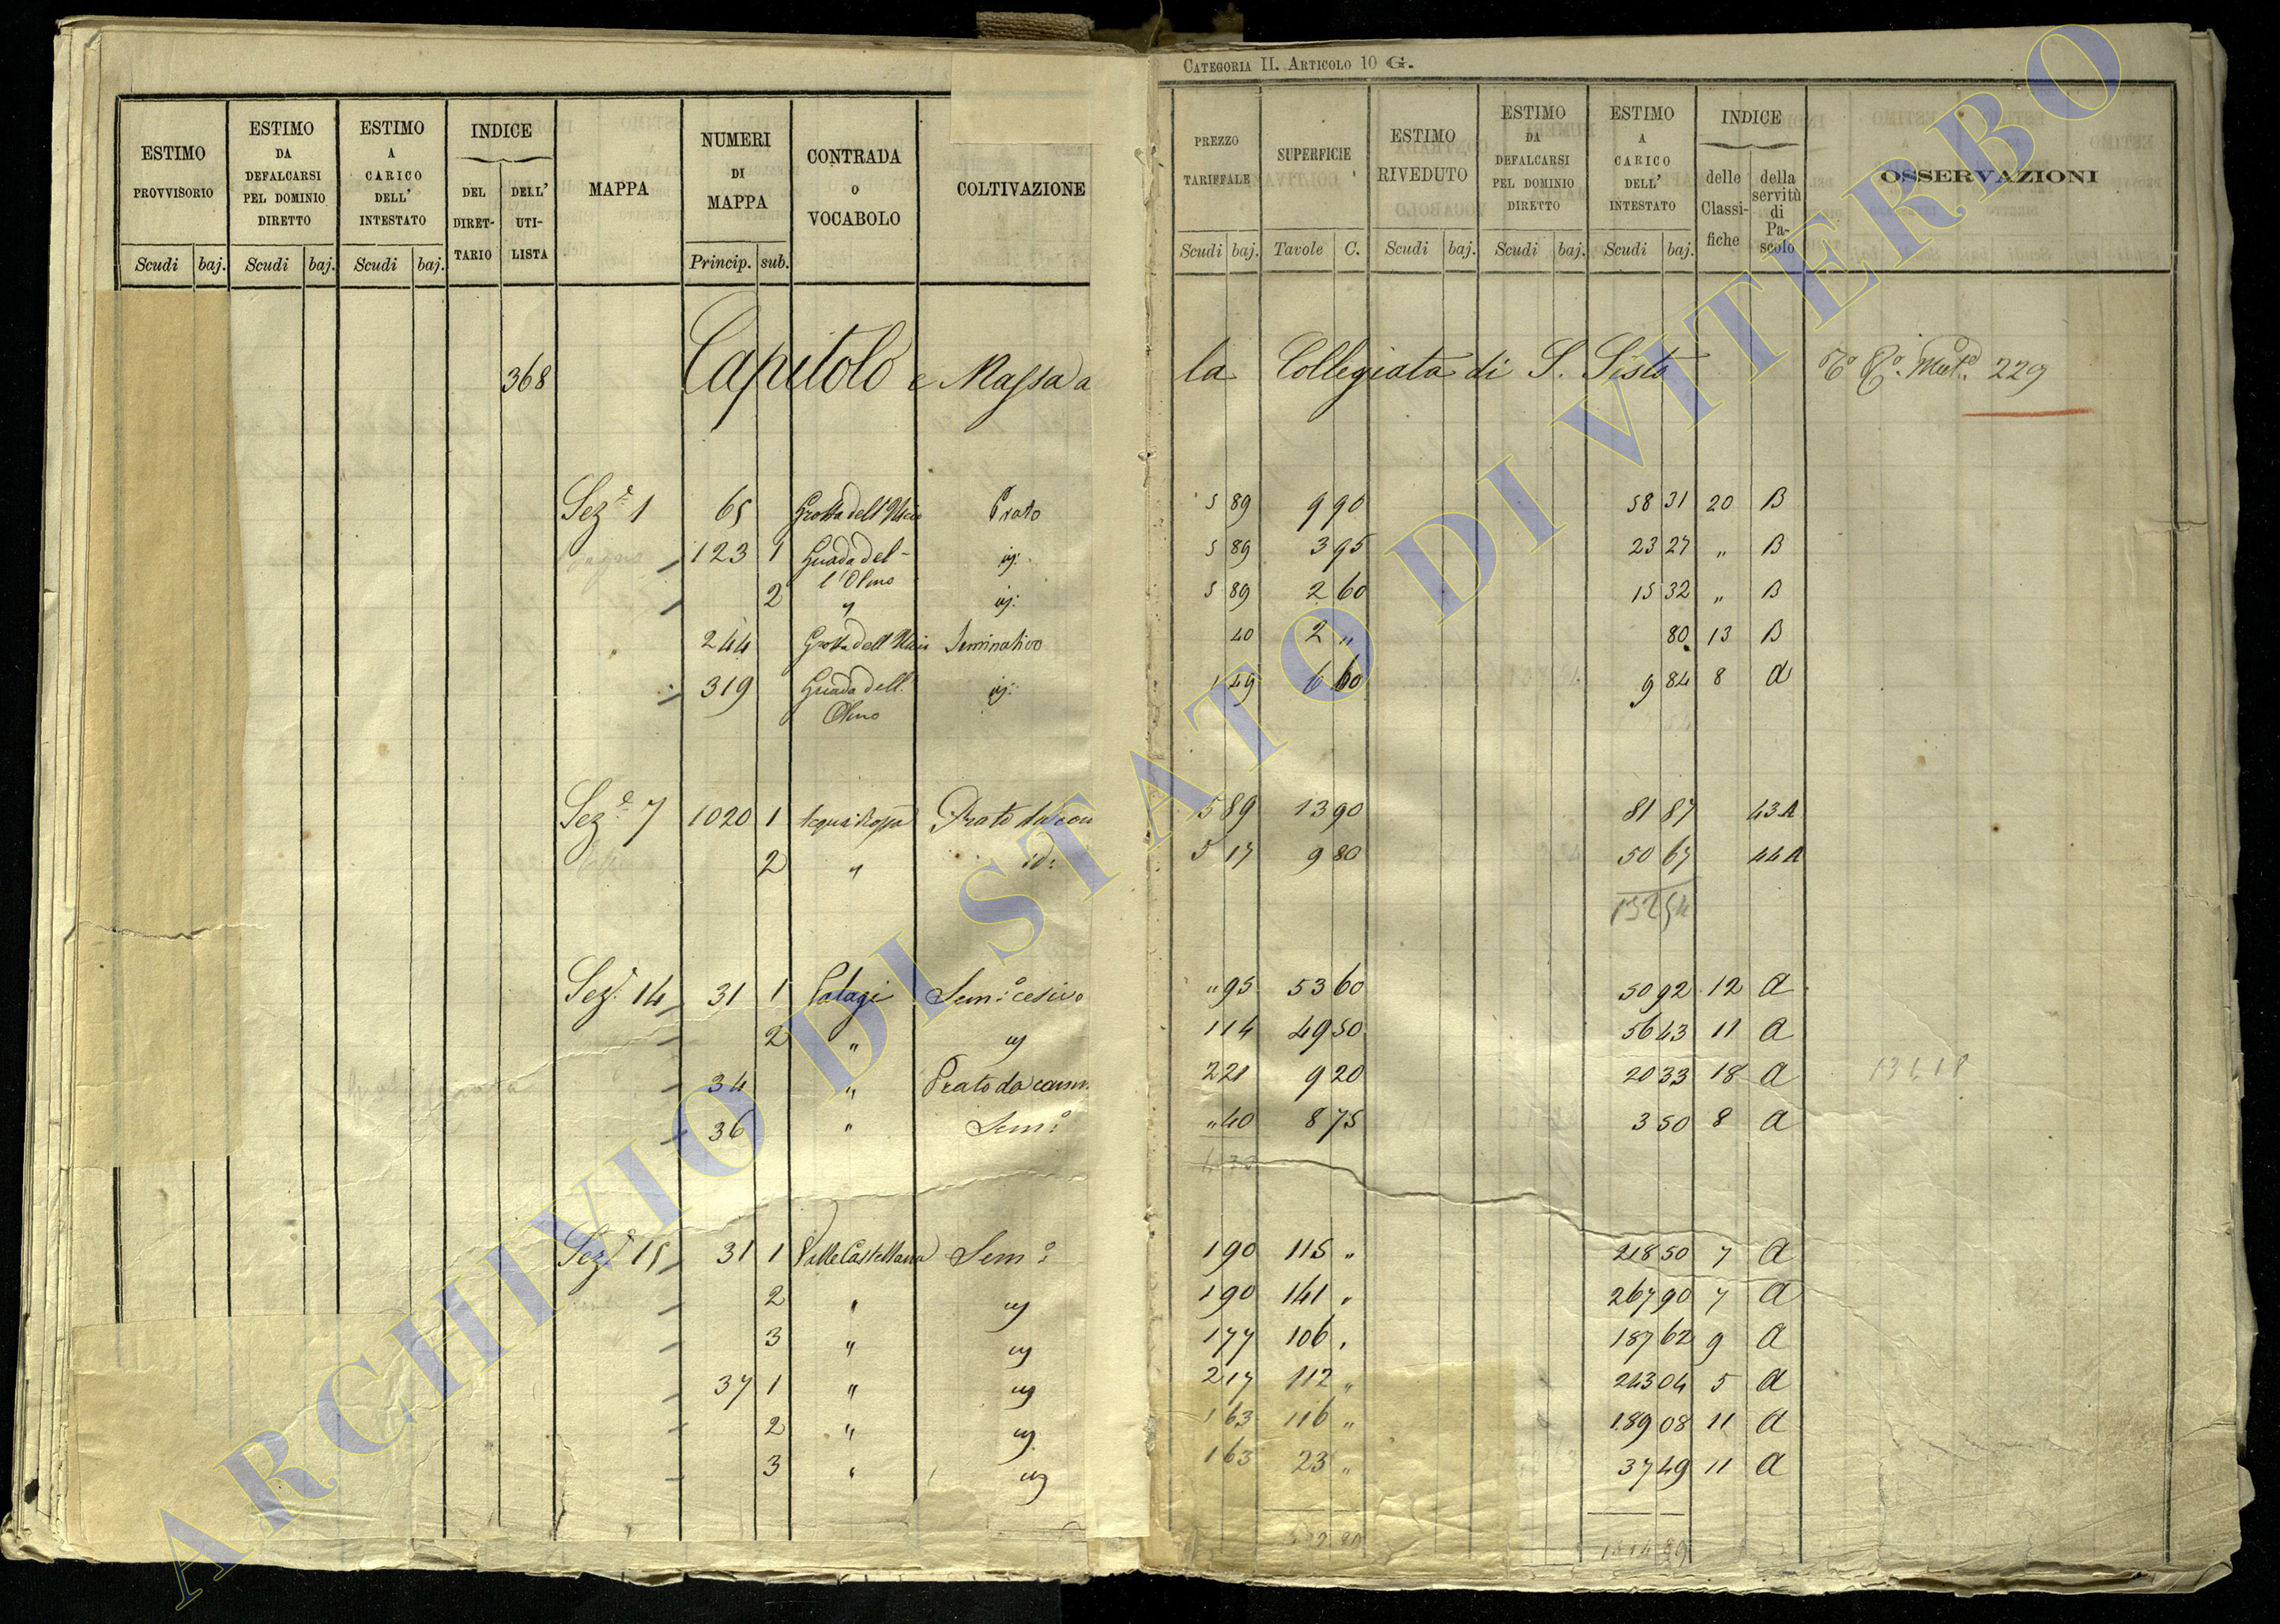 CATEGORIA II. ARTICOLO 10 G.
ESTIMO PROVVISORIO | ESTIMO DA DEFALCARSI PEL DOMINIO DIRETTO | ESTIMO A CARICO DELL' INTESTATO | INDICE | MAPPA | NUMERI DI MAPPA | CONTRADA O VOCABOLO | COLTIVAZIONE | PREZZO TARIFFALE | SUPERFICIE | ESTIMO RIVEDUTO | ESTIMO DA DEFALCARSI PEL DOMINIO DIRETTO | ESTIMO A CARICO DELL' INTESTATO | INDICE | OSSERVAZIONI
DEL DIRETTARIO | DELL' UTILISTA | delle Classifiche | della servitù di Pascolo
Scudi baj. | Scudi baj. | Scudi baj. | Princip. sub. | Scudi baj. | Tavole C. | Scudi baj. | Scudi baj. | Scudi baj.
368 Capitolo e Massa a la Collegiata di S. Sisto 229
Seze 1 65 Grotta dell Prato 5 89 9 90 58 31 20 B
123 1 Guada del- l'Olmo id: 5 89 3 95 23 27 " B
2 " id: 5 89 2 60 15 32 " B
244 Grotta dell Seminativo 40 2 " 80 13 B
319 Guada dell' Olmo id: 1 49 6 60 9 84 8 A
Seze 7 1020 1 Acqua Rossa Prato da con 5 89 13 90 81 87 43 A
2 " id: 5 17 9 80 50 67 44 A
132 54
Sez. 14 31 1 Palagi Semo: cesivo " 95 53 60 50 92 12 A
2 " id 1 14 49 50 56 43 11 A
34 " Prato da comm 2 21 9 20 20 33 18 A
36 " Semo: " 40 8 75 3 50 8 A
Seze 15 31 1 Valle Castellana Semo: 1 90 115 " 218 50 7 A
2 " id 1 90 141 " 267 90 7 A
3 " id 1 77 106 " 187 62 9 A
37 1 " id 2 17 112 " 243 04 5 A
2 " id 1 63 116 " 189 08 11 A
3 " id 1 63 23 " 37 49 11 A
ARCHIVIO DI STATO DI VITERBO